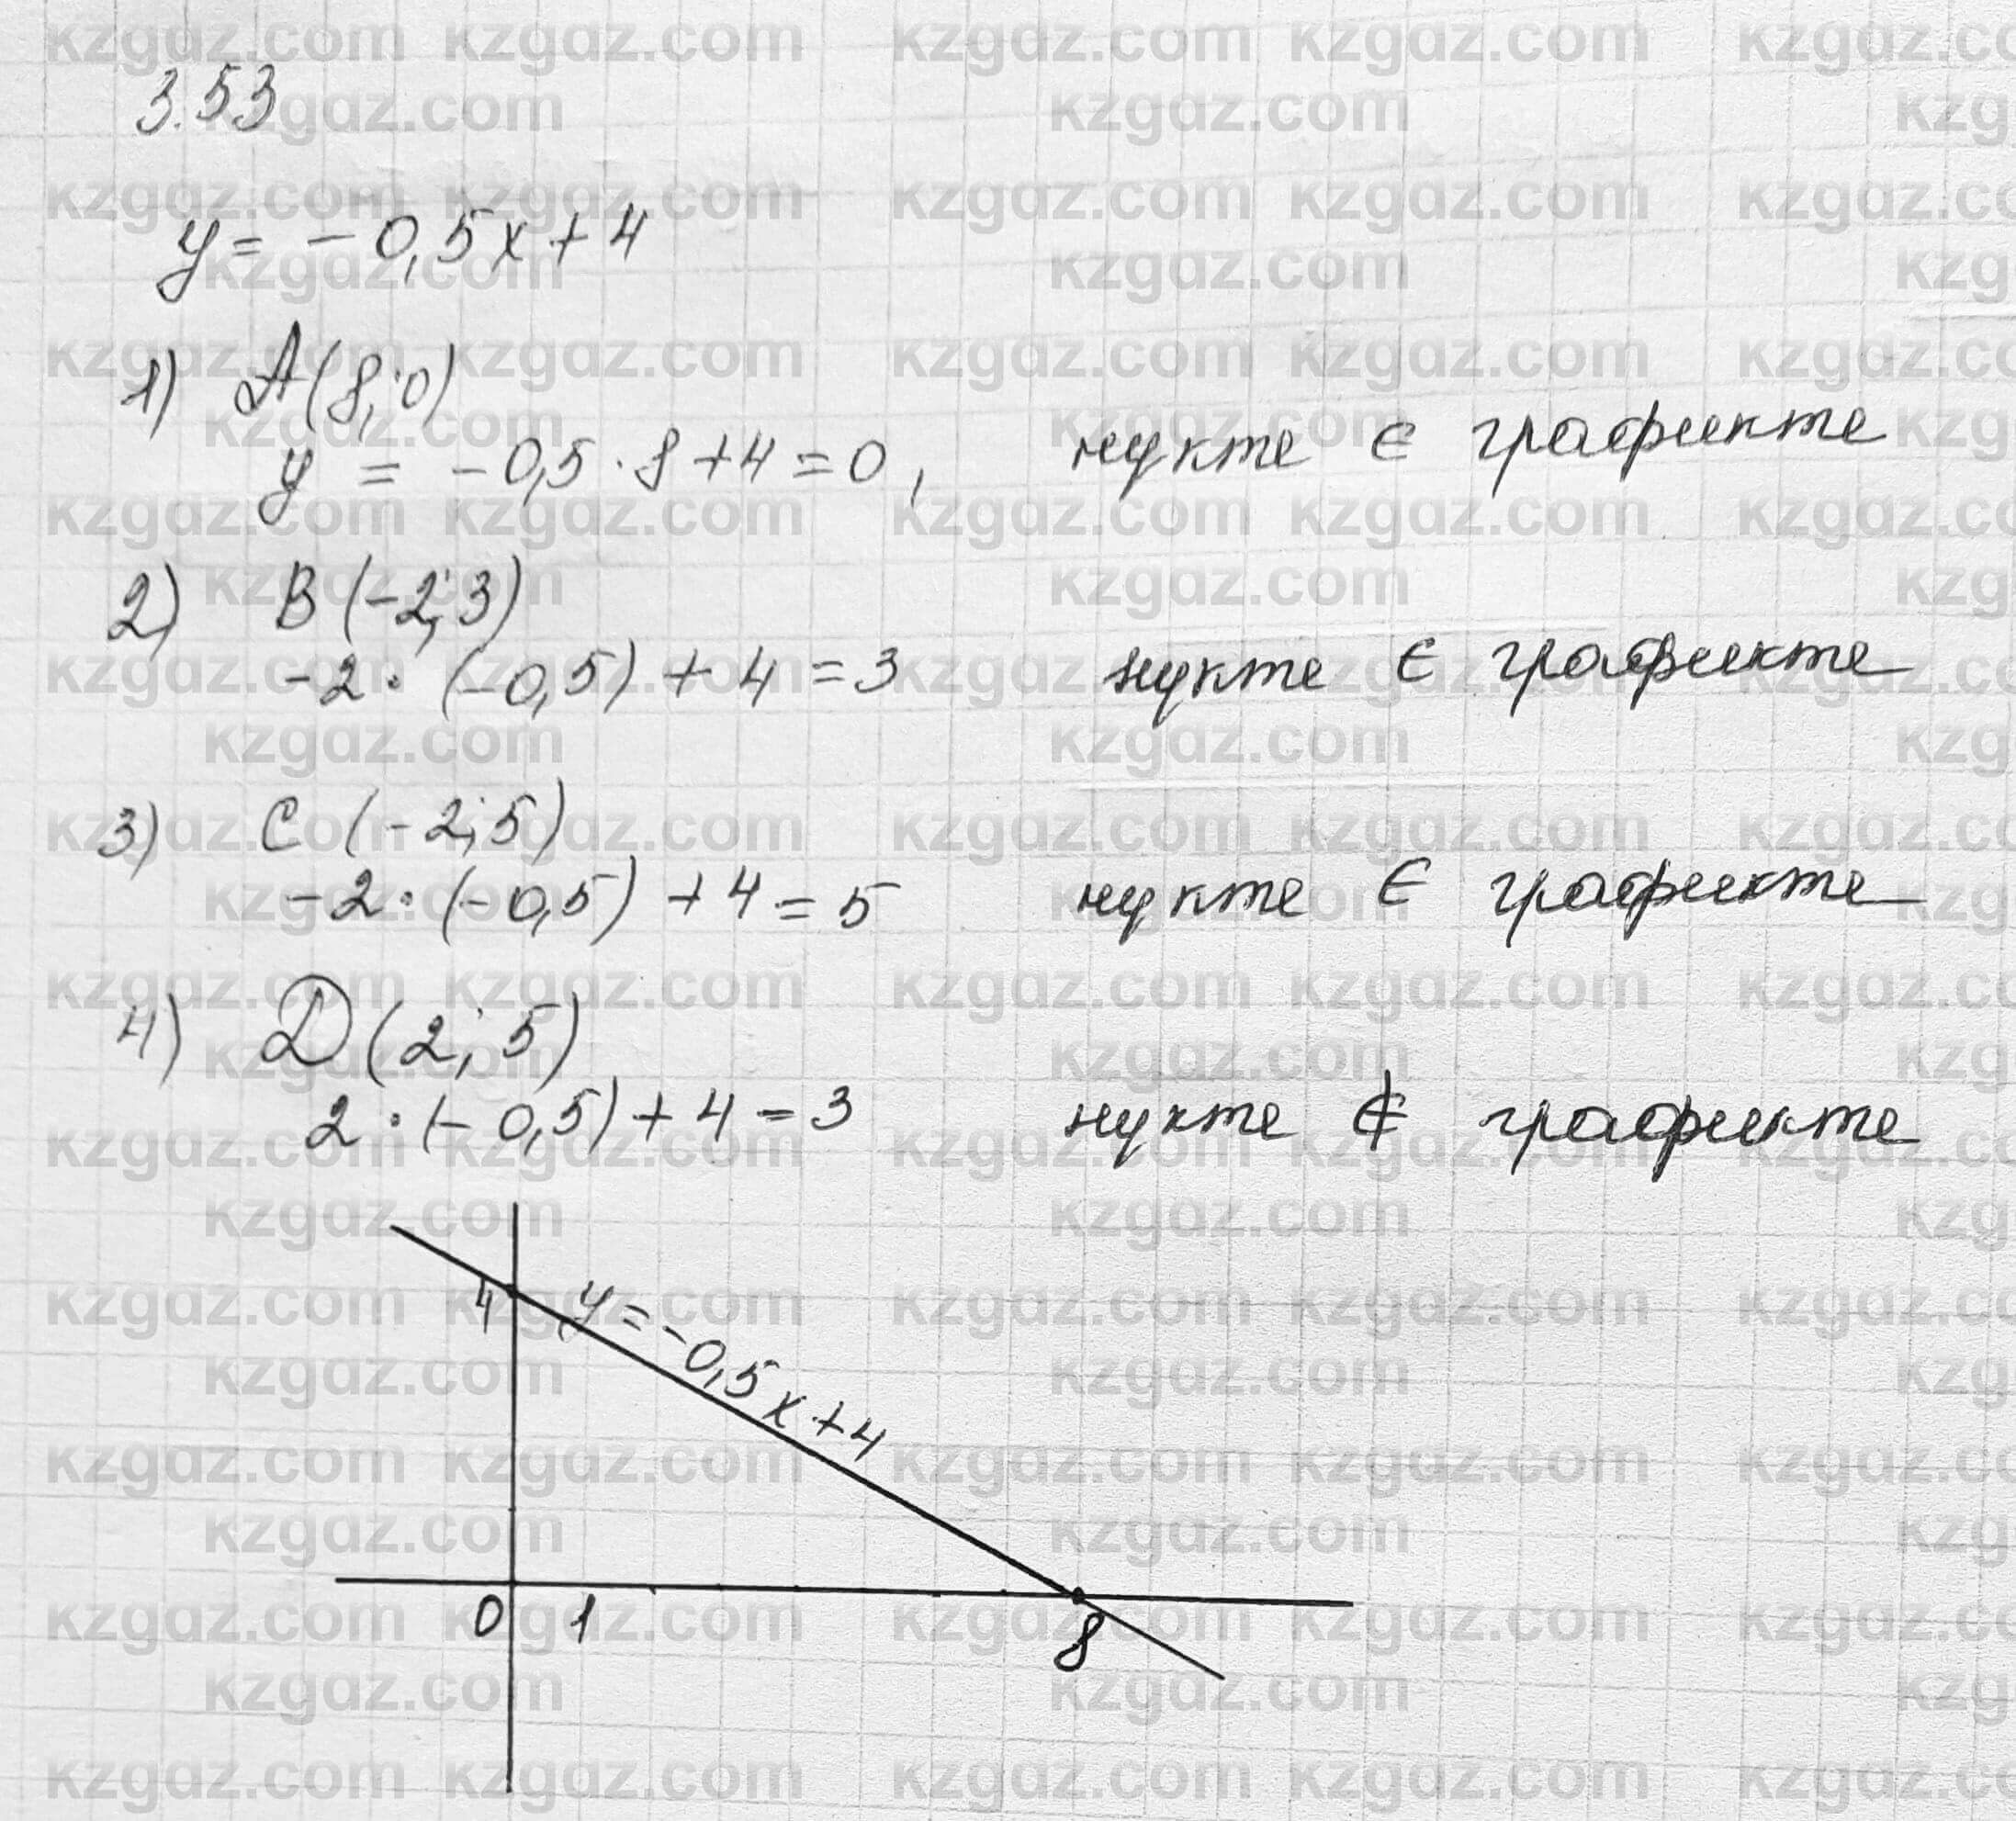 3.53
y = -0,5x + 4
1) A(8; 0)
y = -0,5 · 8 + 4 = 0, нүкте ∈ графикте
2) B(-2; 3)
-2 · (-0,5) + 4 = 3 нүкте ∈ графикте
3) C(-2; 5)
-2 · (-0,5) + 4 = 5 нүкте ∈ графикте
4) D(2; 5)
2 · (-0,5) + 4 = 3 нүкте ∉ графикте
4
y = -0,5x + 4
0 1 8
kzgdz.com